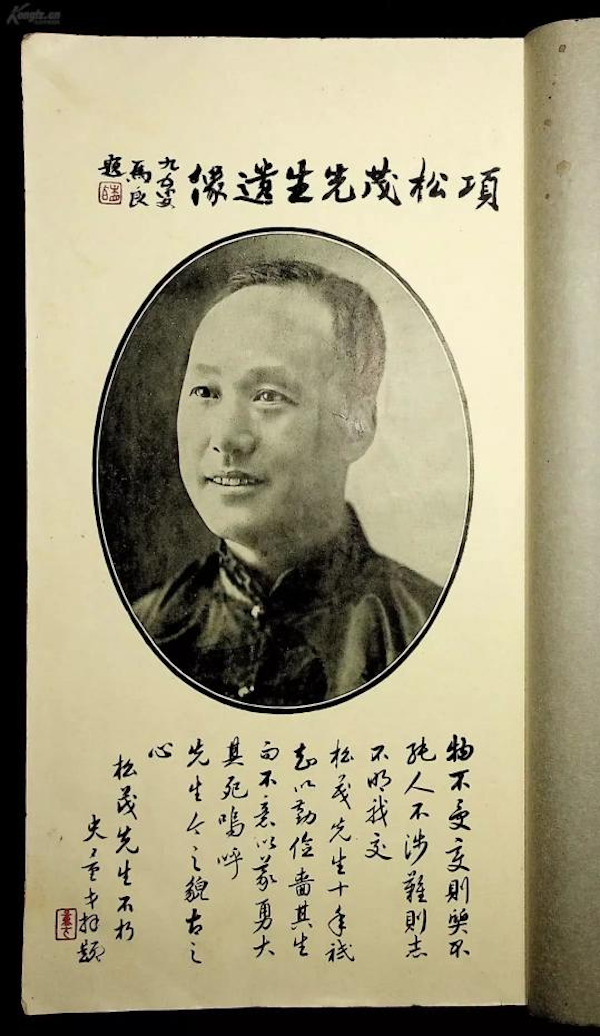 Kongfz.cn
項松茂先生遺像
九五叟
馬良
題
物不受變則不
人不涉難則志
不明我交
松茂先生十年祗
知以勤儉嗇其生
而不意以義勇大
其死嗚呼
先生今之貌古之
心
松茂先生不朽
史量才拜題